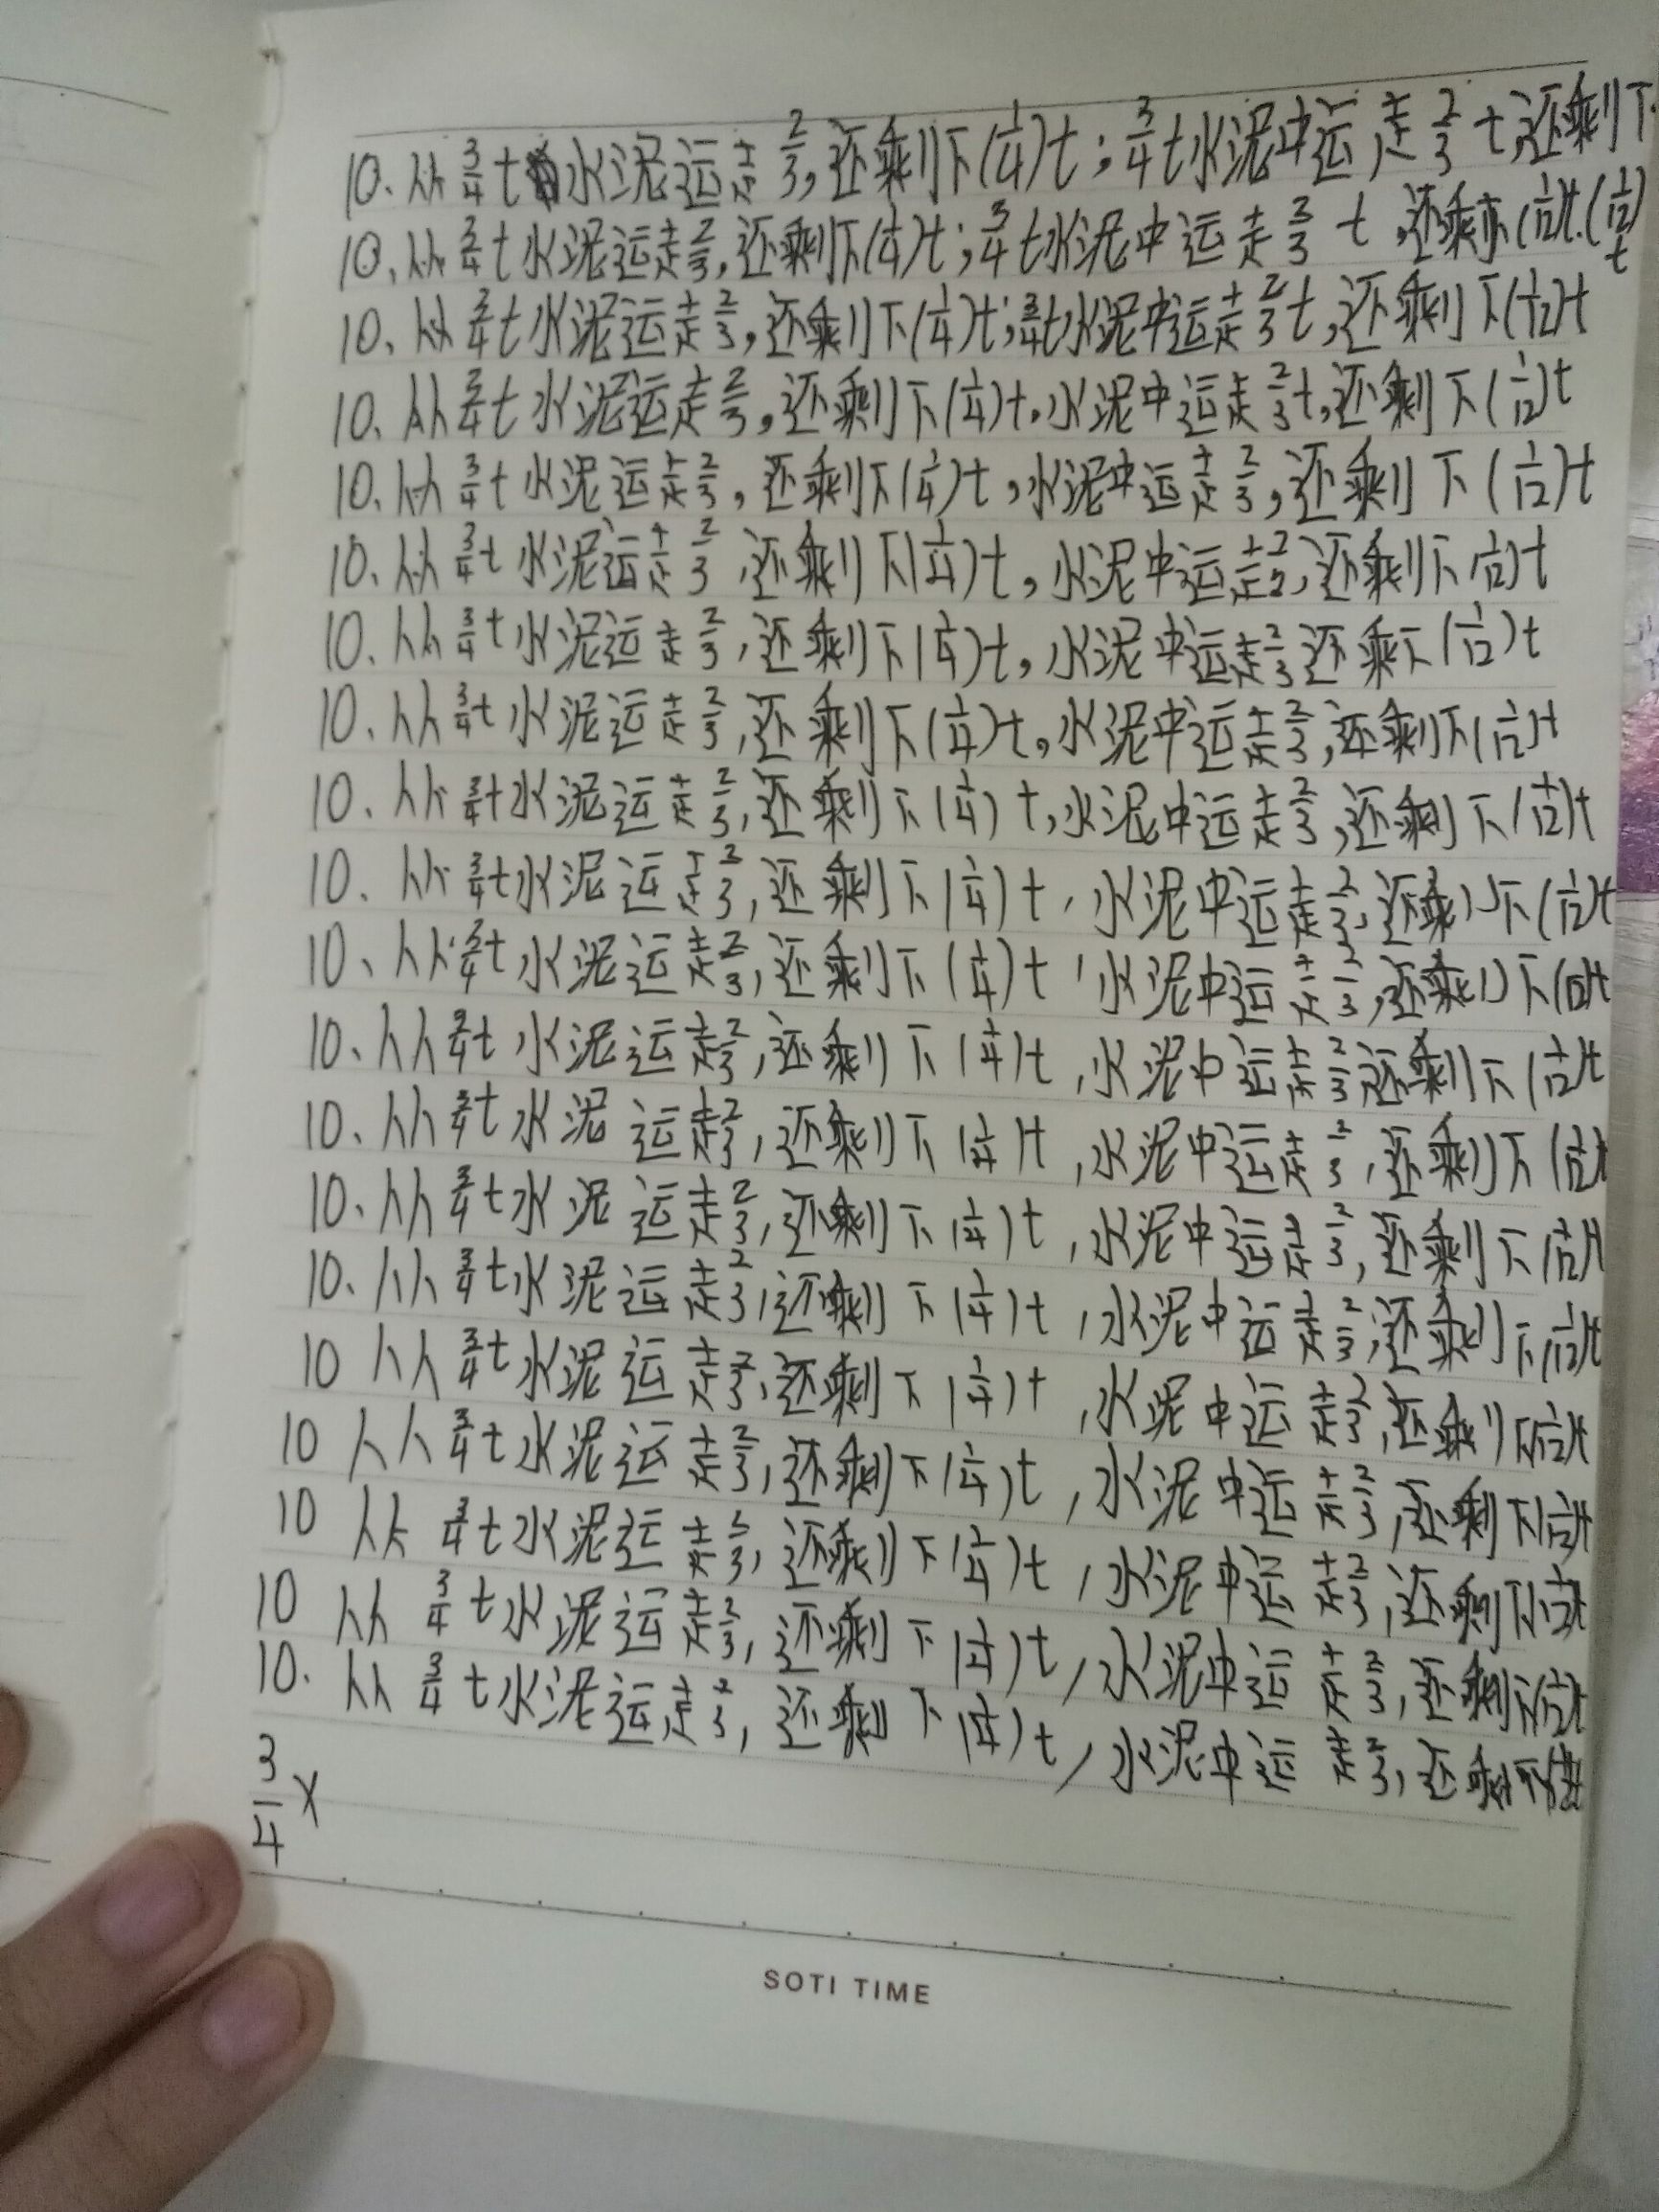 10、从3/4t水泥运走2/3,还剩下(1/4)t;3/4t水泥中运走2/3t,还剩下
10、从3/4t水泥运走2/3,还剩下(1/4)t;3/4t水泥中运走2/3t,还剩下(1/12)t.(1/12)t
10、从3/4t水泥运走2/3,还剩下(1/4)t;3/4t水泥中运走2/3t,还剩下(1/12)t
10、从3/4t水泥运走2/3,还剩下(1/4)t,水泥中运走2/3t,还剩下(1/12)t
10、从3/4t水泥运走2/3,还剩下(1/4)t,水泥中运走2/3,还剩下(1/12)t
10、从3/4t水泥运走2/3,还剩下(1/4)t,水泥中运走2/3,还剩下(1/12)t
10、从3/4t水泥运走2/3,还剩下(1/4)t,水泥中运走2/3还乘下(1/12)t
10、从3/4t水泥运走2/3,还剩下(1/4)t,水泥中运走2/3,还剩下(1/12)t
10、从3/4t水泥运走2/3,还剩下(1/4)t,水泥中运走2/3,还剩下(1/12)t
10、从3/4t水泥运走2/3,还剩下(1/4)t,水泥中运走2/3,还剩下(1/12)t
10、从3/4t水泥运走2/3,还剩下(1/4)t,水泥中运走2/3,还剩下(1/12)t
10、从3/4t水泥运走2/3,还剩下(1/4)t,水泥中运走2/3还剩下(1/12)t
10、从3/4t水泥运走2/3,还剩下(1/4)t,水泥中运走2/3,还剩下(1/12)t
10、从3/4t水泥运走2/3,还剩下(1/4)t,水泥中运走2/3,还剩下(1/12)t
10、从3/4t水泥运走2/3,还剩下(1/4)t,水泥中运走2/3,还剩下(1/12)t
10 从3/4t水泥运走2/3,还剩下(1/4)t,水泥中运走2/3,还剩下(1/12)t
10 从3/4t水泥运走2/3,还剩下(1/4)t,水泥中运走2/3,还剩下(1/12)t
10 从3/4t水泥运走2/3,还剩下(1/4)t,水泥中运走2/3,还剩下(1/12)t
10 从3/4t水泥运走2/3,还剩下(1/4)t,水泥中运走2/3,还剩下(1/12)t
10. 从3/4t水泥运走2/3,还剩下(1/4)t,水泥中运走2/3,还剩下
3/4×
SOTI TIME